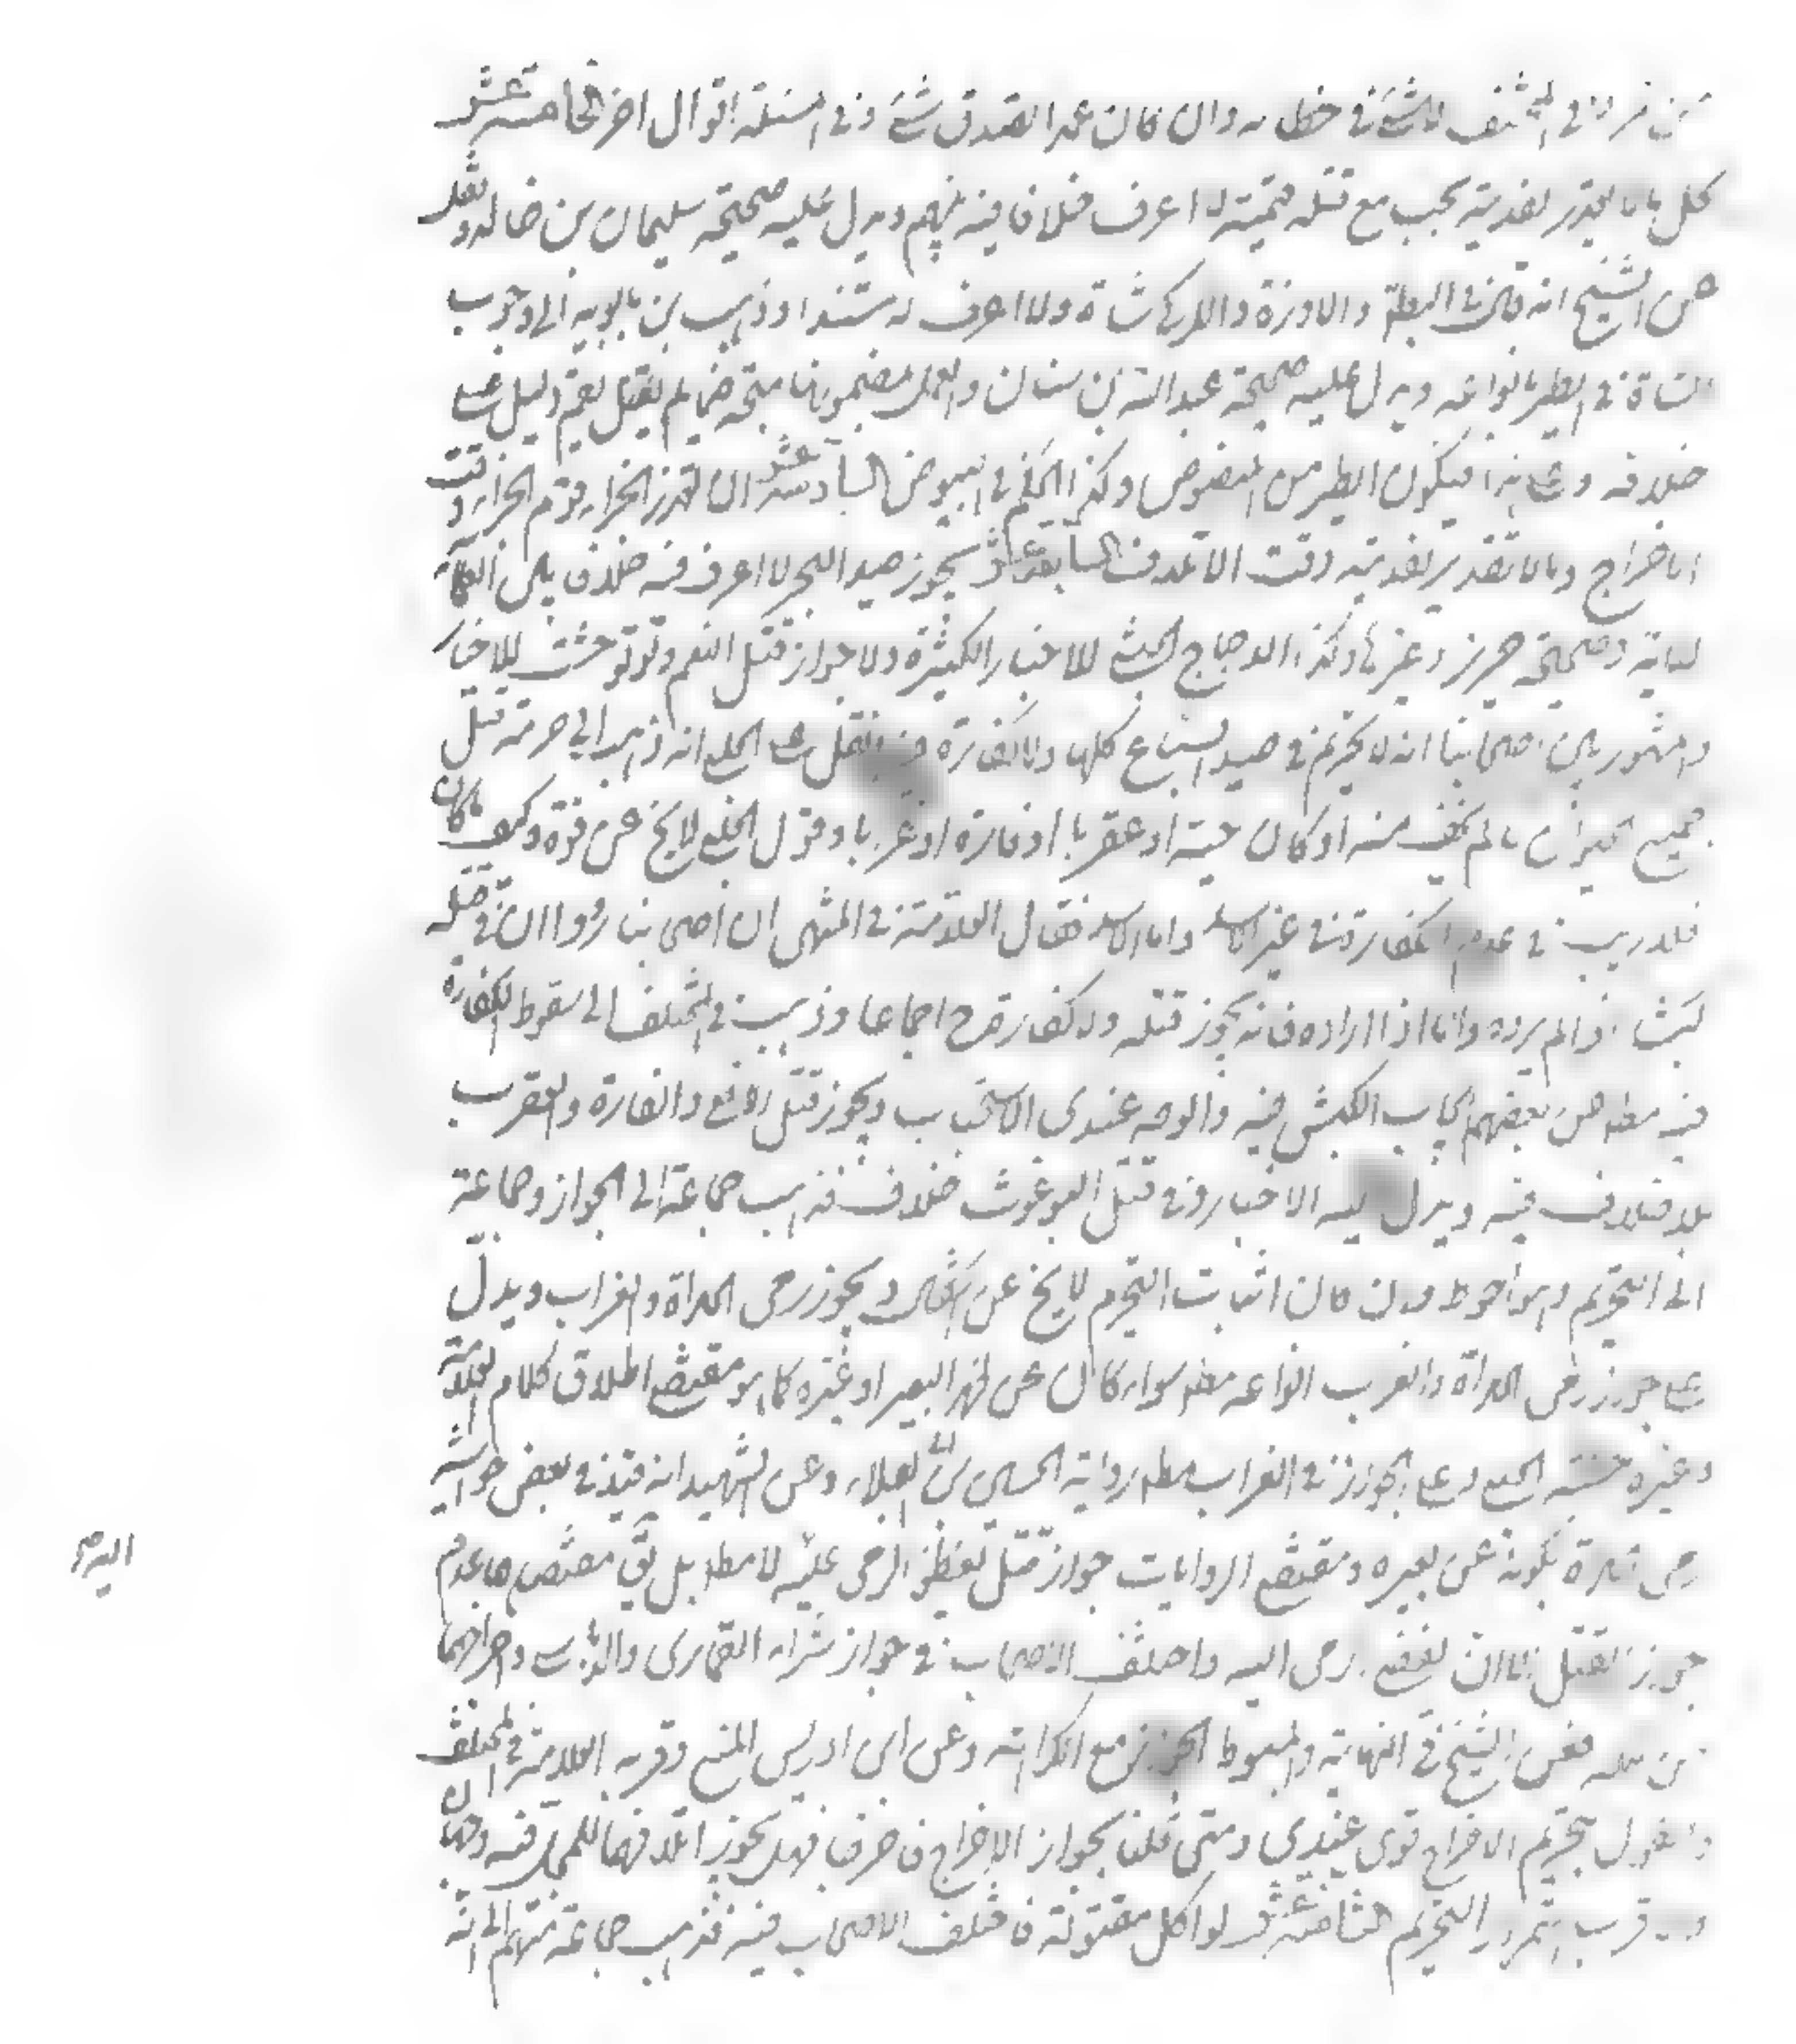 لا شيء في خطائه وان كان عمدا تصدق بشيء وفي المسئلة اقوال اخر الخامسة عشر
كل ما لا تقدير لفديته يجب مع قتله قيمته لا اعرف خلافا فيه بينهم ويدل عليه صحيحة سليمان بن خالد ونقل
عن الشيخ انه قال في البطة والاوزة والكركي شاة ولا اعرف له مستندا وذهب ابن بابويه الى وجوب
الشاة في الطير بانواعه ويدل عليه صحيحة عبد الله بن سنان والعمل بمضمونها متجه فيما لم يقم دليل على
خلافه وعلى هذا فيكون الطير من المنصوص وكذا الحكم في البيوض السادسة عشر ان تعذر الجزاء قوم الجزاء وقت
الاخراج وما لا تقدير لفديته وقت الاتلاف السابعة عشر يجوز صيد البحر لا اعرف فيه خلافا بين العلماء
للآية وصحيحة حريز وغيرها وكذا الدجاج الحبشي للاخبار الكثيرة ولا جواز قتل النعم ولو توحشت للاخبار
والمشهور بين اصحابنا انه لا يحرم في صيد السباع كلها ولا كفارة ونقل عن الحلبي انه ذهب الى حرمة قتل
جميع الحيوان ما لم يخف منه او كان حية او عقربا او فارة او غرابا وقول الحلبي لا يخ عن قوة وكيف ما كان
فلا ريب في عدم الكفارة في غير الاسد واما الاسد فقال العلامة في المنتهى ان اصحابنا رووا ان في قتله
كبشا اذا لم يرده واما اذا اراده فانه يجوز قتله ولا كفارة ح اجماعا وذهب في المختلف الى سقوط الكفارة
فيه مط وعن بعضهم ايجاب الكبش فيه والوجه عندي الاستحباب ويجوز قتل الافعى والفارة والعقرب
بلا خلاف فيه ويدل عليه الاخبار وفي قتل البرغوث خلاف فذهب جماعة الى الجواز وجماعة
الى التحريم وهو احوط وان كان اثبات التحريم لا يخ عن اشكال ويجوز رمى الحداة والغراب ويدل
على جواز رمى الحداة والغراب بانواعه مط سواء كان عن ظهر البعير او غيره كما هو مقتضى اطلاق كلام العلامة
وغيره حسنة الحلبي وعلى الجواز في الغراب مط رواية الحسين بن ابي العلاء وعن الشهيد انه قيد في بعض حواشيه
رمى الحداة بكونه عن بعيره ومقتضى الروايات جواز الرمى عليه لا مط بل بقي مقتضى ها عدم
جواز القتل الا ان يفضى الرمى اليه واختلف الاصحاب في جواز شراء القماري والدباسي واخراجهما
من مكة فعن الشيخ في النهاية والمبسوط الجواز مع الكراهة وعن ابن ادريس المنع وقربه العلامة في المختلف
والقول بتحريم الاخراج قوي عندي ومتى قلنا بجواز الاخراج فاخرجا فهل يجوز اتلافهما للمحل فيه وجهان
والاقرب استمرار التحريم الثامنة عشر لو اكل مقتوله فاختلف الاصحاب فيه فذهب جماعة منهم الى انه